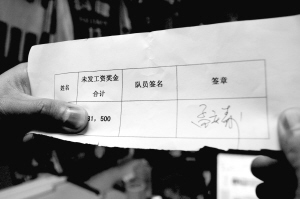 姓名 未发工资奖金合计 队员签名 签章
31，500